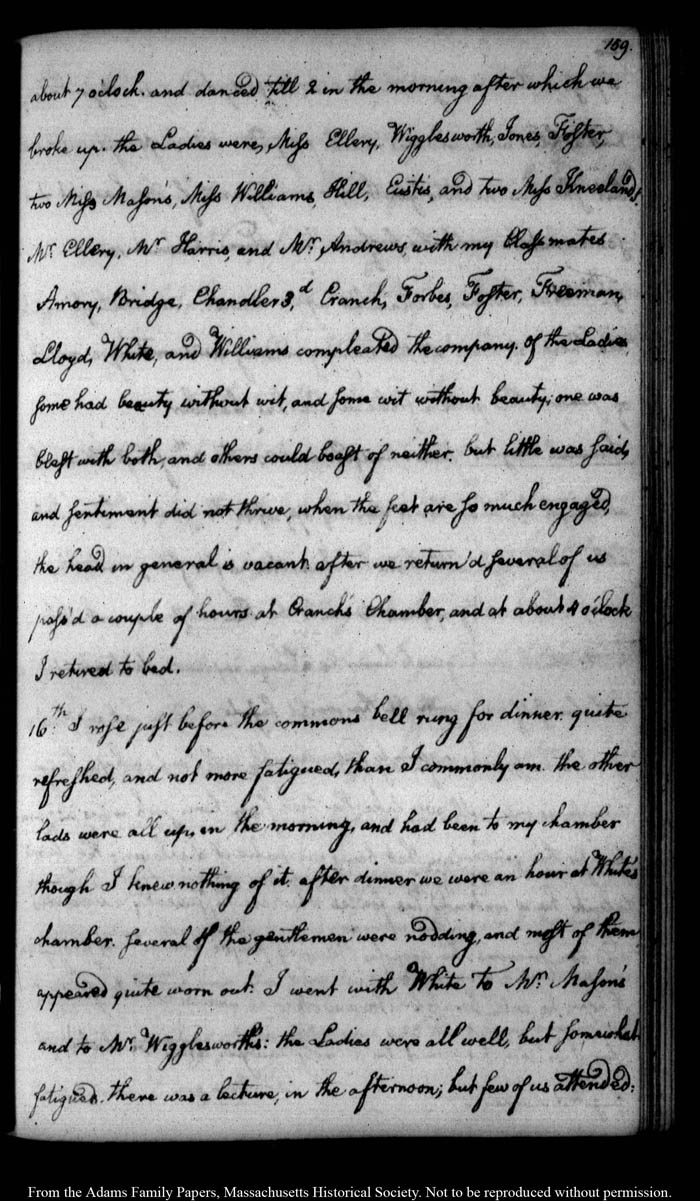 159.
about 7 o'clock. and danced till 2 in the morning after which we
broke up. the Ladies were, Miss Ellery, Wigglesworth, Jones, Foster,
two Miss Mason's, Miss Williams, Hill, Eustis, and two Miss Kneelands,
Mr. Ellery, Mr. Harris, and Mr. Andrews, with my Classmates
Amory, Bridge, Chandler 3,d Cranch, Forbes, Foster, Freeman,
Lloyd, White, and Williams compleated the company. Of the Ladies,
some had beauty without wit, and some wit without beauty; one was
blest with both, and others could boast of neither. but little was said,
and sentiment did not thrive, when the feet are so much engaged,
the head in general is vacant. after we return'd several of us
pass'd a couple of hours at Cranch's Chamber, and at about 4 o'clock
I retired to bed.
16th. I rose just before the commons bell rung for dinner. quite
refreshed, and not more fatigued, than I commonly am. the other
lads were all up, in the morning, and had been to my chamber
though I knew nothing of it. after dinner we were an hour at White's
chamber. several of the gentlemen were nodding, and most of them
appeared quite worn out. I went with White to Mr. Mason's
and to Mr. Wigglesworth's: the Ladies were all well, but somewhat
fatigued. there was a lecture, in the afternoon; but few of us attended:
From the Adams Family Papers, Massachusetts Historical Society. Not to be reproduced without permission.